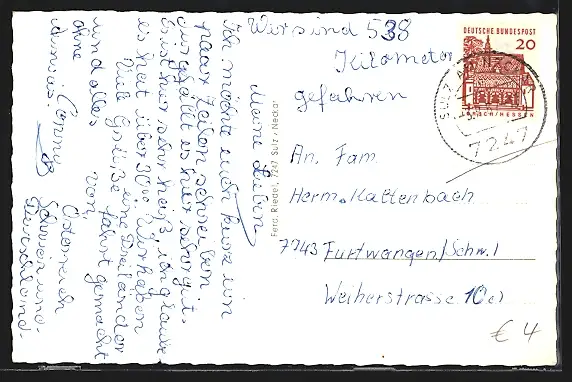 Wir sind 538
Kilometer
gefahren
Meine Lieben
Ich möchte euch kurz ein
paar Zeilen schreiben
mir gefällt es hier sehr gut.
Es ist hier sehr heiß, ich glaube
es hat über 30°. Wir haben
eine Dreiländer
fahrt gemacht
Österreich
Schweiz und
Deutschland.
Viele Grüße von
und alles
Conny
DEUTSCHE BUNDESPOST
20
LORSCH/HESSEN
SULZ AM NECKAR
7247
An. Fam.
Herm. Kaltenbach
7743 Furtwangen/Schw.
Weiherstrasse 10c)
Ferd. Riedel, 7247 Sulz/Neckar
€ 4